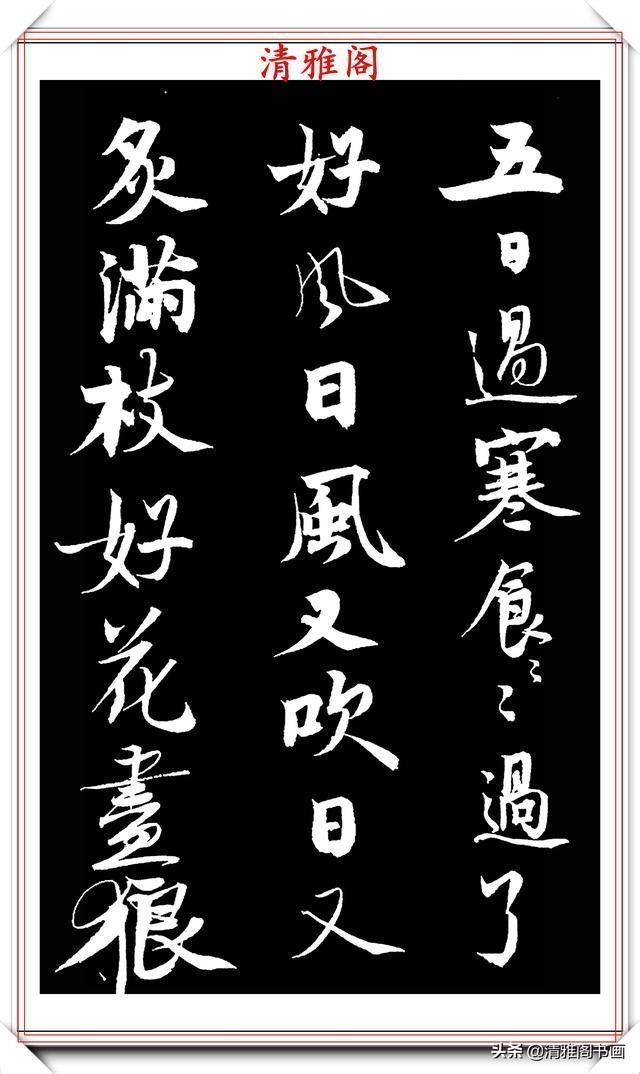 清雅阁
五日過寒食〻〻過了
好风日風又吹日又
炙滿枝好花畫狼
头条@清雅阁书画